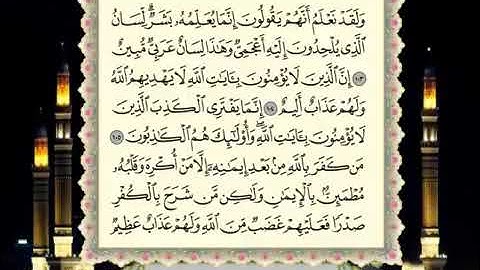 وَلَقَدْ نَعْلَمُ أَنَّهُمْ يَقُولُونَ إِنَّمَا يُعَلِّمُهُۥ بَشَرٌۗ لِّسَانُ
ٱلَّذِى يُلْحِدُونَ إِلَيْهِ أَعْجَمِىٌّ وَهَٰذَا لِسَانٌ عَرَبِىٌّ مُّبِينٌ
١٠٣ إِنَّ ٱلَّذِينَ لَا يُؤْمِنُونَ بِـَٔايَٰتِ ٱللَّهِ لَا يَهْدِيهِمُ ٱللَّهُ
وَلَهُمْ عَذَابٌ أَلِيمٌ ١٠٤ إِنَّمَا يَفْتَرِى ٱلْكَذِبَ ٱلَّذِينَ
لَا يُؤْمِنُونَ بِـَٔايَٰتِ ٱللَّهِۖ وَأُو۟لَٰٓئِكَ هُمُ ٱلْكَٰذِبُونَ ١٠٥
مَن كَفَرَ بِٱللَّهِ مِنۢ بَعْدِ إِيمَٰنِهِۦٓ إِلَّا مَنْ أُكْرِهَ وَقَلْبُهُۥ
مُطْمَئِنٌّۢ بِٱلْإِيمَٰنِ وَلَٰكِن مَّن شَرَحَ بِٱلْكُفْرِ
صَدْرًا فَعَلَيْهِمْ غَضَبٌ مِّنَ ٱللَّهِ وَلَهُمْ عَذَابٌ عَظِيمٌ